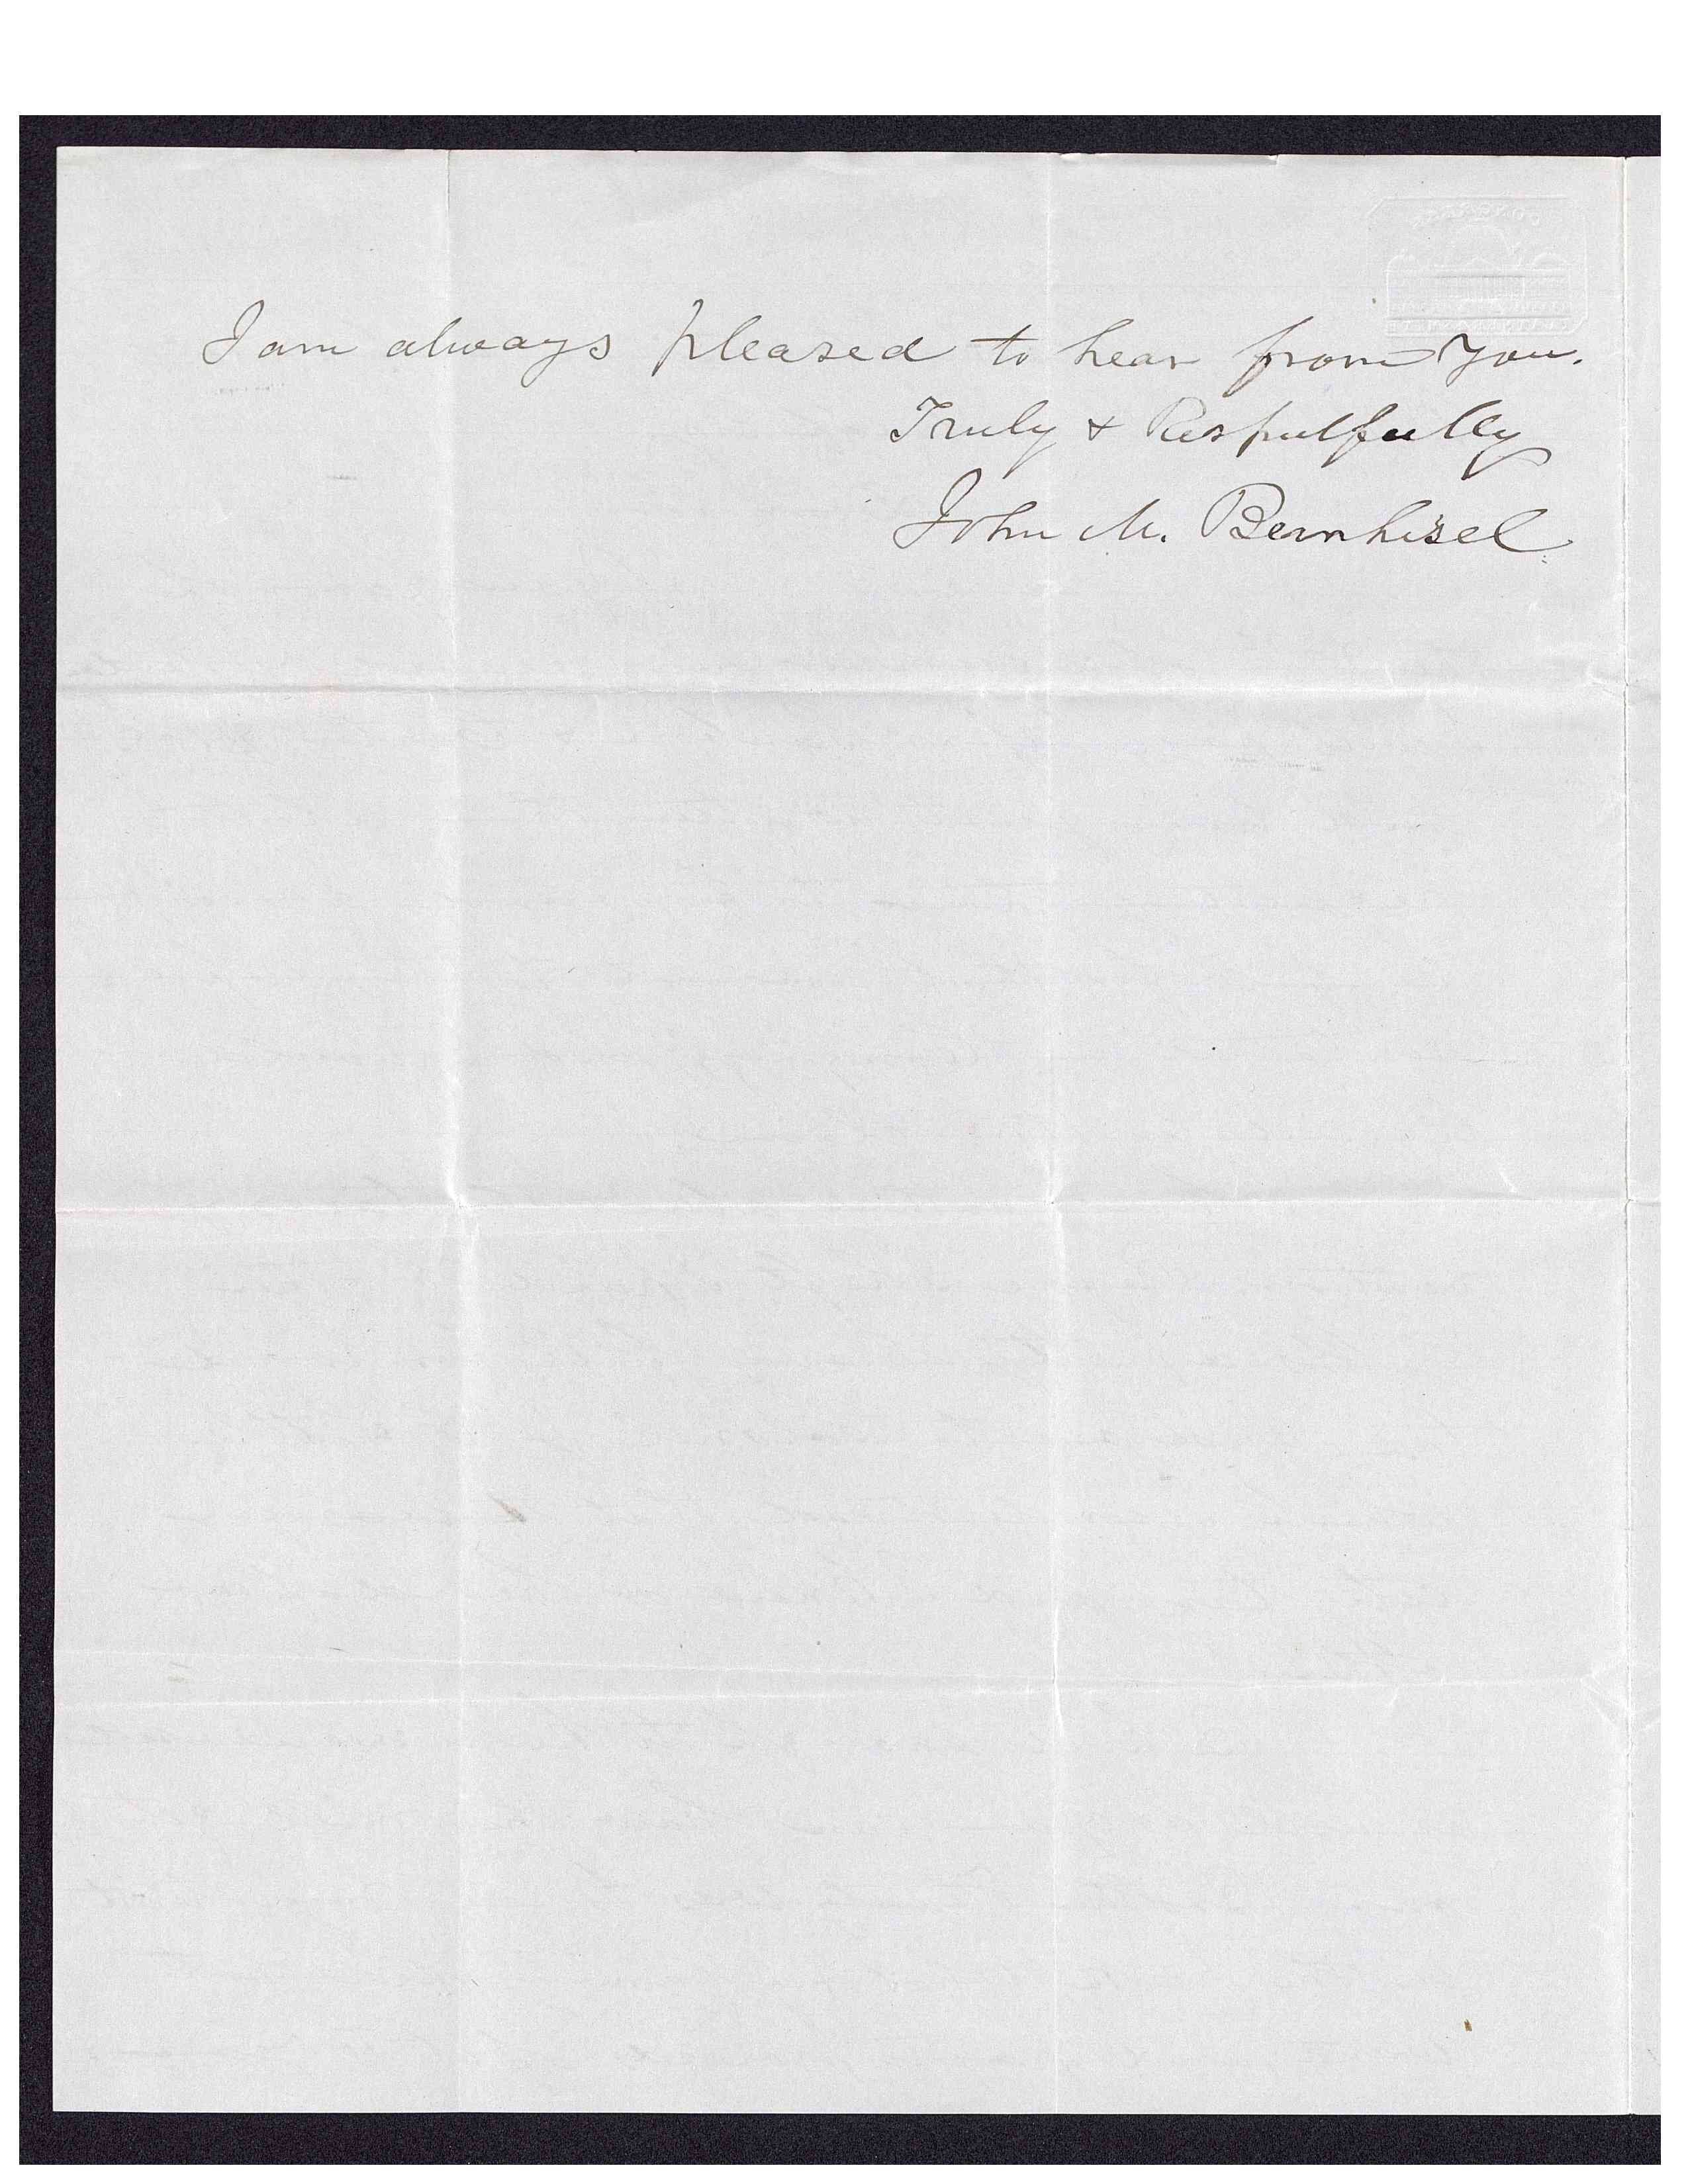 I am always pleased to hear from you.
Truly & Respectfully
John M. Bernhisel